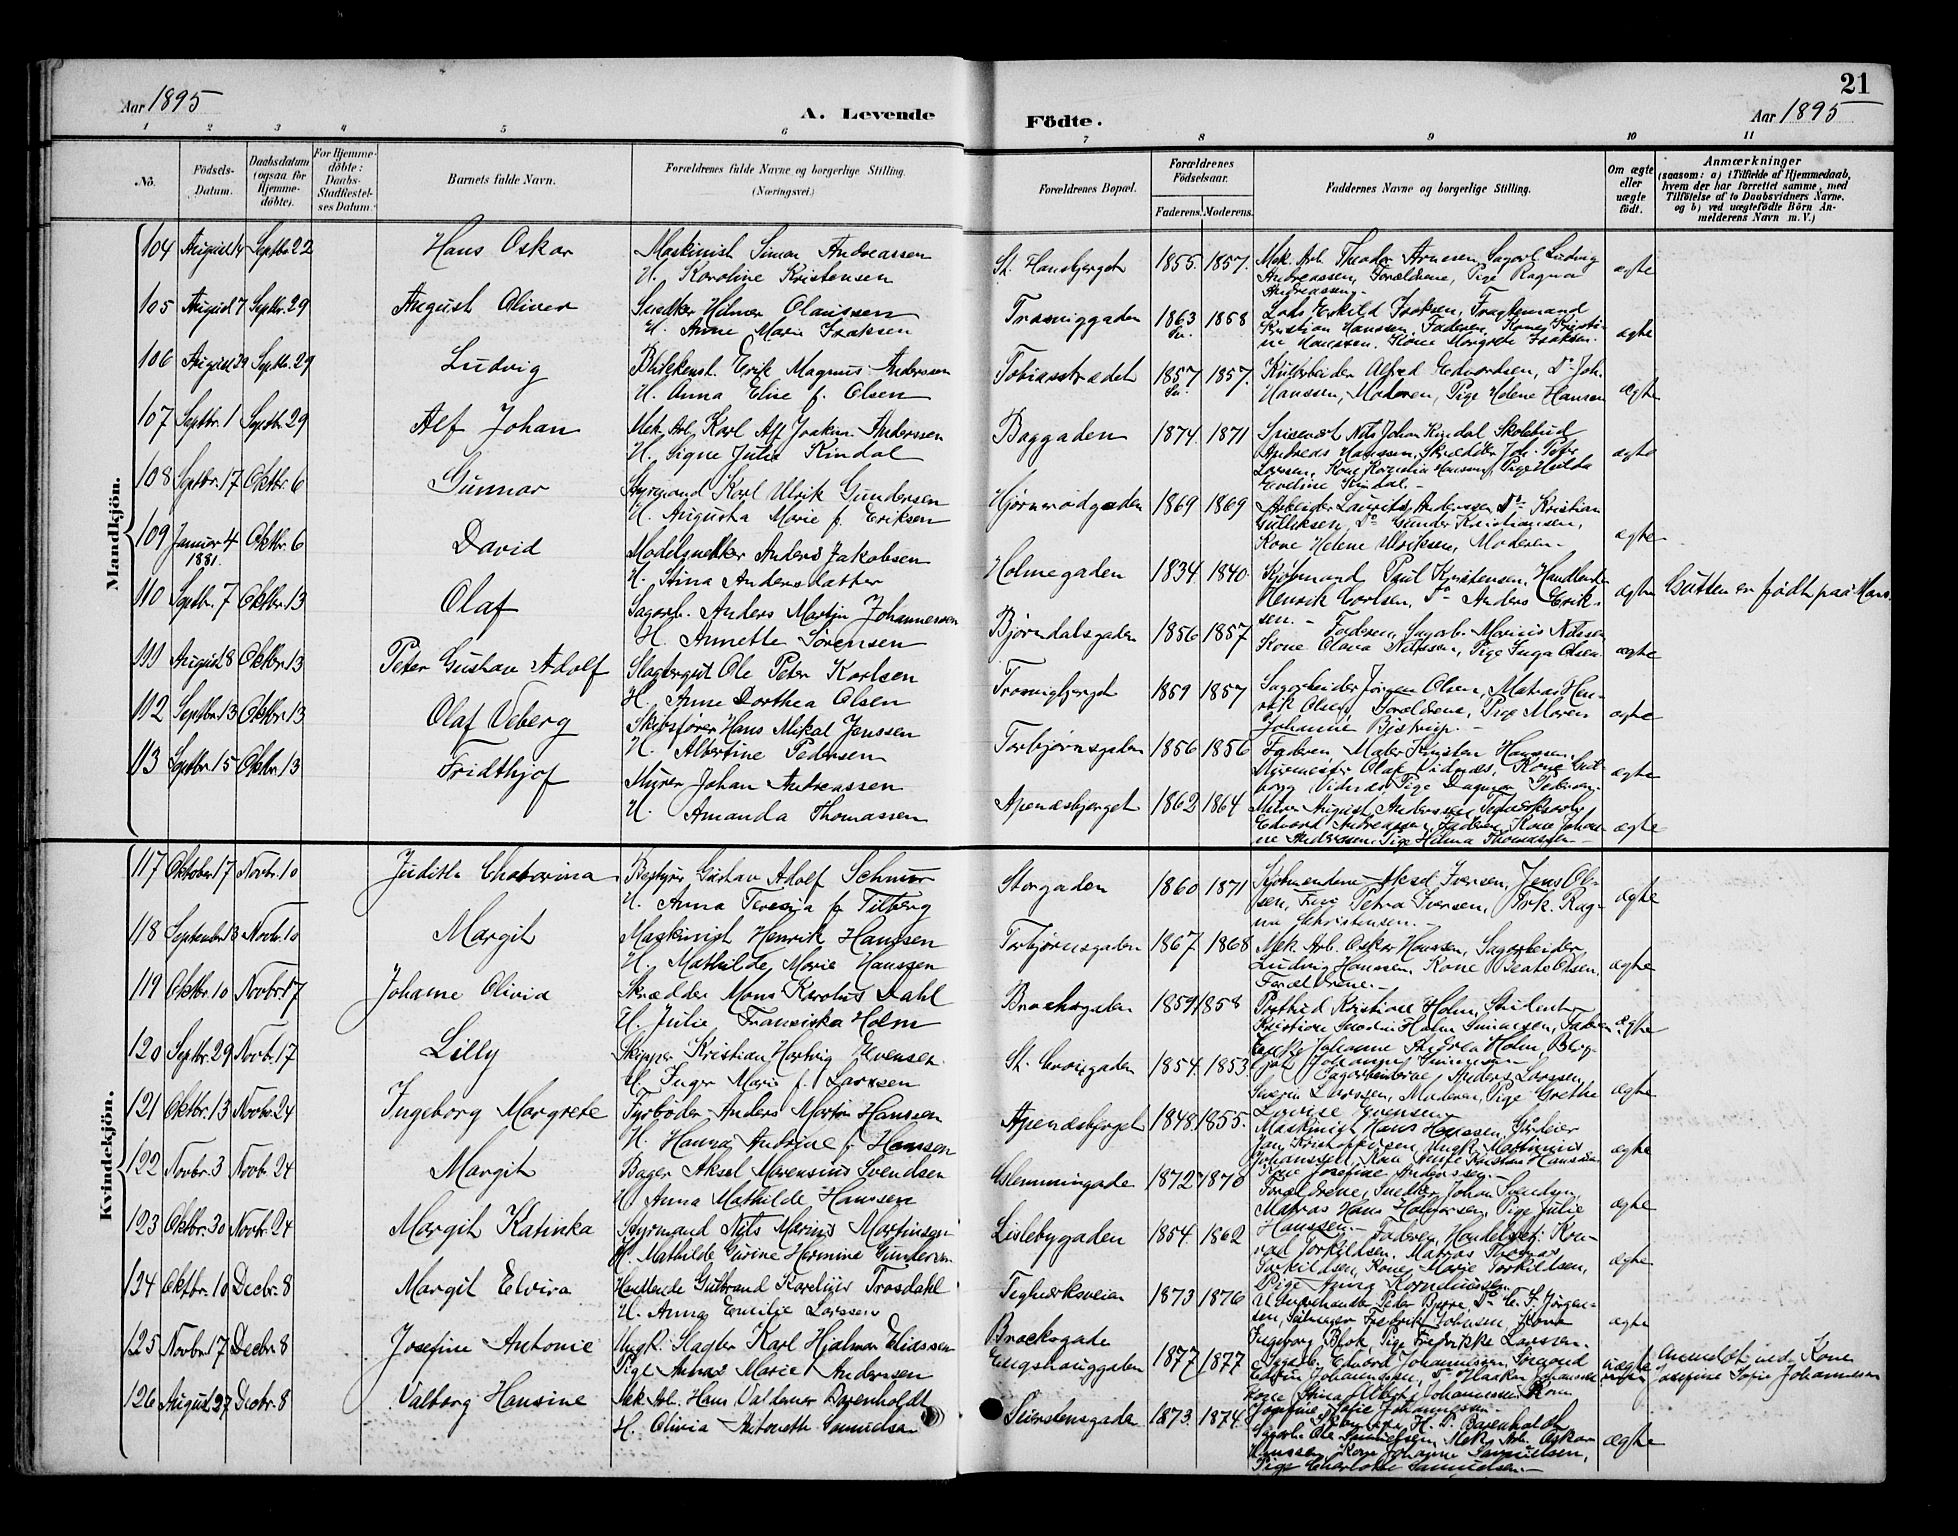 Aar 1895
A. Levende
Födte.
21
Aar 1895
1 2 3 4 5 6 7 8 9 10 11
No.
Födsels-
Datum.
Daabsdatum
(ogsaa for
Hjemme-
döbte).
For Hjemme-
döbte:
Daabs-
Stadfæstel-
ses Datum.
Barnets fulde Navn.
Forældrenes fulde Navne og borgerlige Stilling.
(Næringsvei.)
Forældrenes Bopæl.
Forældrenes
Födselsaar.
Faderens. Moderens.
Faddernes Navne og borgerlige Stilling.
Om ægte
eller
uægte
födt.
Anmærkninger
(saasom: a) i Tilfælde af Hjemmedaab,
hvem der har forrettet samme, med
Tilföielse af to Daabsvidners Navne.
og b) ved uægtefödte Börn An-
melderens Navn m. V.)
Mandkjön.
104 August 14 Septbr. 22 Hans Oskar Maskinist Simon Andreassen
H. Karoline Kristensen
St. Hansbjerget 1855. 1857. Mek. Arb. Theodor Arnesen, Sagarb. Ludvig
Andreassen, Forældrene, Pige Ragna
Andreassen.
ægte
105 August 7 Septbr. 29 August Oliver Snedker Hilmer Olaussen
H. Anne Marie Isaksen
Trosviggaden 1863 1858 Lods Eskild Isaksen, Fragtemand
Kristian Hanssen, Faderen, Kone Kristi-
ne Hanssen, Kone Margrete Isaksen.
ægte
106 August 29 Septbr. 29 Ludvig Blikkensl. Erik Magnus Anderssen
H. Anna Elise f. Olsen
Tobiasstrædet 1857 1857. Kularbeider Alfred Edvardsen, Do Joh.
Hanssen, Moderen, Pige Helene Hansen
ægte
107 Septbr. 1 Septbr. 29 Alf Johan Mek. Arb. Karl Alf Joakim Anderssen
H. Signe Julie Kindal
Baggaden 1874 1871 Spisevært Nils Johan Kindal Skolebud
Andreas Hanssen, Skrædder Joh. Petr.
Larsen, Kone Kornelia Hanssen, Pige Hulda
Eveline Kindal.
ægte
108 Septbr. 17 Oktbr. 6 Gunnar Styrmand Karl Ulrik Gundersen
H. Augusta Marie f. Eriksen
Hjørnerødgaden 1869 1869 Arbeider Laurits Anderssen Do Kristian
Gulliksen, Do Gunder Kristiansen,
Kone Helene Ulriksen, Moderen.
ægte
109 Januar 4 1881. Oktbr. 6 David Modelsnekker Anders Jakobsen
H. Stina Andersdatter
Holmegaden 1834 1840. Kjøbmand Paul Kristensen, Handlende
Henrik Carlsen, Do Anders Erik-
sen.
ægte Gutten er født paa Moss.
110 Septbr. 7 Oktbr. 13 Olaf Sagarb. Anders Martin Johannessen
H. Annette Sørensen
Bjørndalsgaden 1856 1857 Faderen, Sagarb. Marius Nilsen
Kone Olava Nilssen, Pige Inga Olsen
ægte
111 August 8 Oktbr. 13 Peter Gustav Adolf Slagtergut Ole Peter Karlsen
H. Anne Dorthea Olsen
Trosvigbjerget 1859 1857 Sagarbeider Jørgen Olsen, Matros Hen-
rik Olsen, Forældrene, Pige Maren
Johanne Bjstrup.
ægte
112 Septbr. 13 Oktbr. 13 Olaf Veberg Skibsfører Hans Mikal Jenssen
H. Albertine Pedersen
Torbjørnsgaden 1856 1856 Faderen, Maler Kristen Hanssen,
Murmester Olaf Vidnæs, Kone
Vidnæs, Pige Dagmar Pedersen.
ægte
113 Septbr. 15 Oktbr. 13 Fridthjof Murer Johan Andreassen
H. Amanda Thomassen
Apenæsbjerget 1862 1864 Murer August Anderssen, Teglværksarb.
Edvard Andreassen, Faderen, Kone Johan-
ne Andreassen, Pige Hilma Thomassen.
ægte
Kvindekjön.
117 Oktober 17 Novbr. 10 Judith Chatarina Bestyrer Gustav Adolf Schnur
H. Anna Teresia f. Tilberg
Storgaden 1860 1871 Kjøbmændene Aksel Iversen, Jens Ol-
sen, Fru Petra Iversen, Frk. Rag-
na Christensen.
ægte
118 September 13 Novbr. 10 Margit Maskinist Henrik Hanssen
H. Mathilde Marie Hanssen
Torbjørnsgaden 1867 1868 Mek. Arb. Oskar Hanssen, Sagarbeider
Ludvig Hanssen, Kone Beate Olsen,
Forældrene.
ægte
119 Oktbr. 10 Novbr. 17 Johanne Olivia Skrædder Mons Karolus Dahl
H. Julie Franciska Holm
Brochsgaden 1859 1858 Kristiane Holm, Student
Kristian Holm Simensen, Faderen
Enke Johanne Andrea Holm,
ægte
120 Septbr. 29 Novbr. 17 Lilly Skipper Kristian Hartvig Evensen
H. Inger Marie f. Larssen
St. Croixgaden 1854. 1853 Sagarbeiderne Anders Larssen,
Severin Larssen, Moderen, Pige Grethe
Lovise Evensen
ægte
121 Oktbr. 13 Novbr. 24 Ingeborg Margrete Fyrbøder Anders Martin Hanssen
H. Hanna Andrine f. Hanssen
Apenæsbjerget 1848. 1855. Maskinist Hans Hanssen, Gardeier
Jan Kristoffersen, Ungk. Mathinius
Johanssen, Kone Anne Kristine Hanssen
Kone Josefine Anderssen.
ægte
122 Novbr. 3 Novbr. 24 Margit Bager Aksel Marensius Svendsen
H. Anna Mathilde Hanssen
Glemmingade 1872 1870 Forældrene, Snedker Johan Svendsen,
Matros Hans Halvorsen, Pige Julie
Hanssen.
ægte
123 Oktbr. 30 Novbr. 24 Margit Katinka Styrmand Nils Marius Martinsen
H. Mathilde Gurine Hermine Gundersen
Lislebygaden 1854. 1862 Faderen, Handelsbetj. Kon-
rad Torkildsen, Matros Thomas
Torkildsen, Kone Marie Torkildsen,
Pige Anna Korneliussen
ægte
124 Oktbr. 10 Decbr. 8 Margit Elvira Handlende Gulbrand Karelius Trosdahl
H. Anna Emilie Larssen
Teglverksveien 1873 1876 Uhrmager Peder Bjerre, Do C. F. Jørgen-
sen, Fredrik Johnsen, Kone
Ingeborg Blok, Pige Fredrikke Larssen.
ægte
125 Novbr. 17 Decbr. 8 Josefine Antonie Ungk. Slagter Karl Hjalmar Eliassen
Pige Anna Marie Anderssen
Brocksgade
Enghauggaden 1877 1877 Sagarb. Edvard Johannessen, Sømand
Edvin Johannessen, Do Haakon Johannessen
Kone Anna Johannessen, Kone
Josefine Sofie Johannessen
uægte Anmeldt ved Kone
Josefine Sofie Johannessen
126 August 27 Decbr. 8 Valborg Hansine Mek. Arb. Hans Valdemar Barenholdt
H. Olivia Antonette Samuelsen
1873. 1874. H. P. Barenholdt
Sagarb. Ole Samuelsen, Mek. Arb. Oskar
Hanssen, Kone Johanne Samuelsen,
Pige Charlotte Samuelsen.
ægte